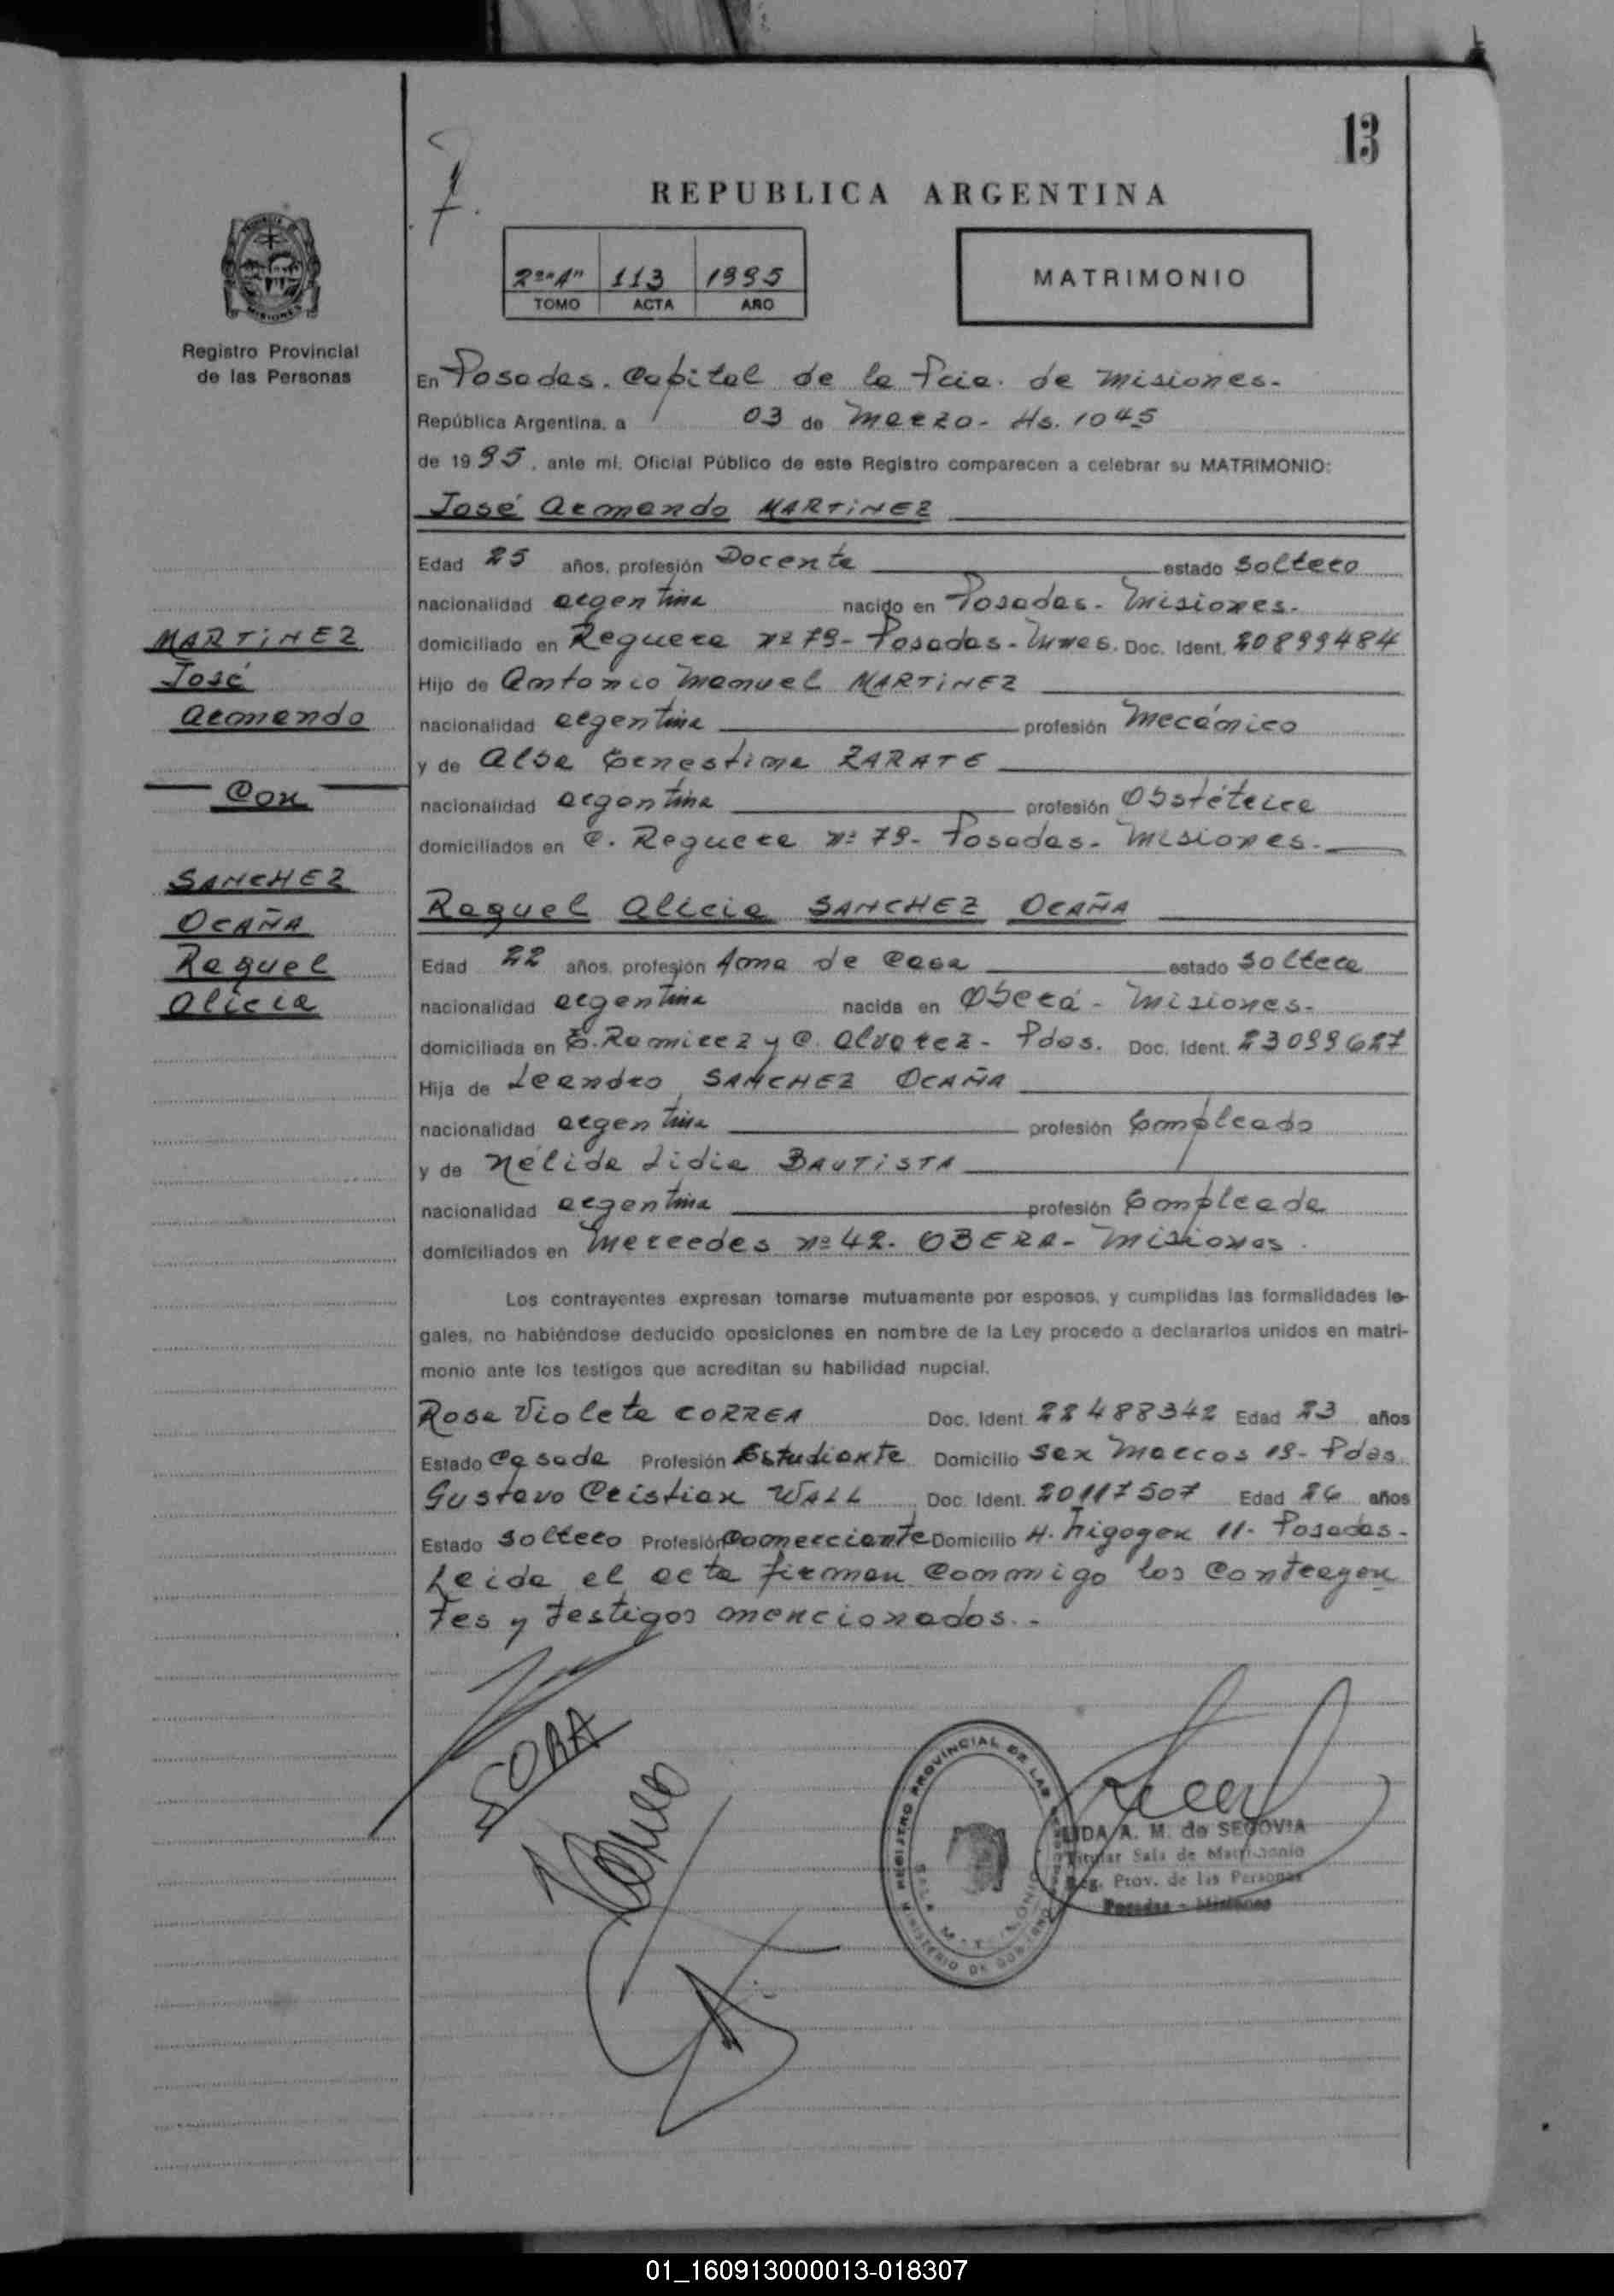 13
REPUBLICA ARGENTINA
2º "A" 113 1995
TOMO ACTA AÑO
MATRIMONIO
Registro Provincial
de las Personas
En Posadas. Capital de la Pcia. de Misiones.
República Argentina, a 03 de Marzo - Hs. 1045
de 1995, ante mí, Oficial Público de este Registro comparecen a celebrar su MATRIMONIO:
José Armando MARTINEZ
Edad 25 años, profesión Docente estado Soltero
nacionalidad argentina nacido en Posadas - Misiones.
domiciliado en Reguera nº 79 - Posadas - Mnes. Doc. Ident. 20899484
Hijo de Antonio Manuel MARTINEZ
nacionalidad argentina profesión Mecánico
y de Alba Ernestina ZARATE
nacionalidad argentina profesión Obstétrica
domiciliados en C. Reguera nº 79 - Posadas - Misiones.
MARTINEZ
José
Armando
Con
SANCHEZ
OCAÑA
Raquel
Alicia
Raquel Alicia SANCHEZ OCAÑA
Edad 22 años, profesión Ama de Casa estado Soltera
nacionalidad argentina nacida en Oberá - Misiones.
domiciliada en E. Ramirez y C. Alvarez - Pdas. Doc. Ident. 23099627
Hija de Leandro SANCHEZ OCAÑA
nacionalidad argentina profesión Empleado
y de Nélida Lidia BAUTISTA
nacionalidad argentina profesión Empleada
domiciliados en Mercedes nº 42. OBERA - Misiones.
Los contrayentes expresan tomarse mutuamente por esposos, y cumplidas las formalidades le-
gales, no habiéndose deducido oposiciones en nombre de la Ley procedo a declararlos unidos en matri-
monio ante los testigos que acreditan su habilidad nupcial.
Rosa Violeta CORREA Doc. Ident. 22488342 Edad 23 años
Estado Casada Profesión Estudiante Domicilio San Marcos 19 - Pdas.
Gustavo Cristian WALL Doc. Ident. 20117507 Edad 26 años
Estado Soltero Profesión Comerciante Domicilio H. Irigoyen 11 - Posadas -
Leida el acta firman conmigo los contrayen
tes y testigos mencionados. -
REGISTRO PROVINCIAL DE LAS PERSONAS
MINISTERIO DE GOBIERNO
SALA MATRIMONIO
LIDA A. M. de SEGOVIA
Titular Sala de Matrimonio
Reg. Prov. de las Personas
Posadas - Misiones
01_160913000013-018307